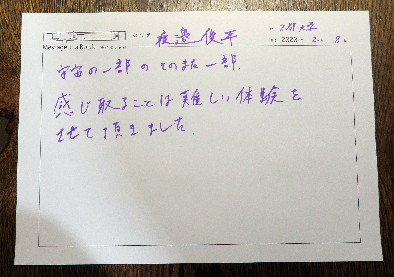 Message in a Book
夜邊 俊平
京都大学
2020 2 8
宇宙の一部のそのまた一部.
感じ取ることは難しい体験を
させて頂きました.